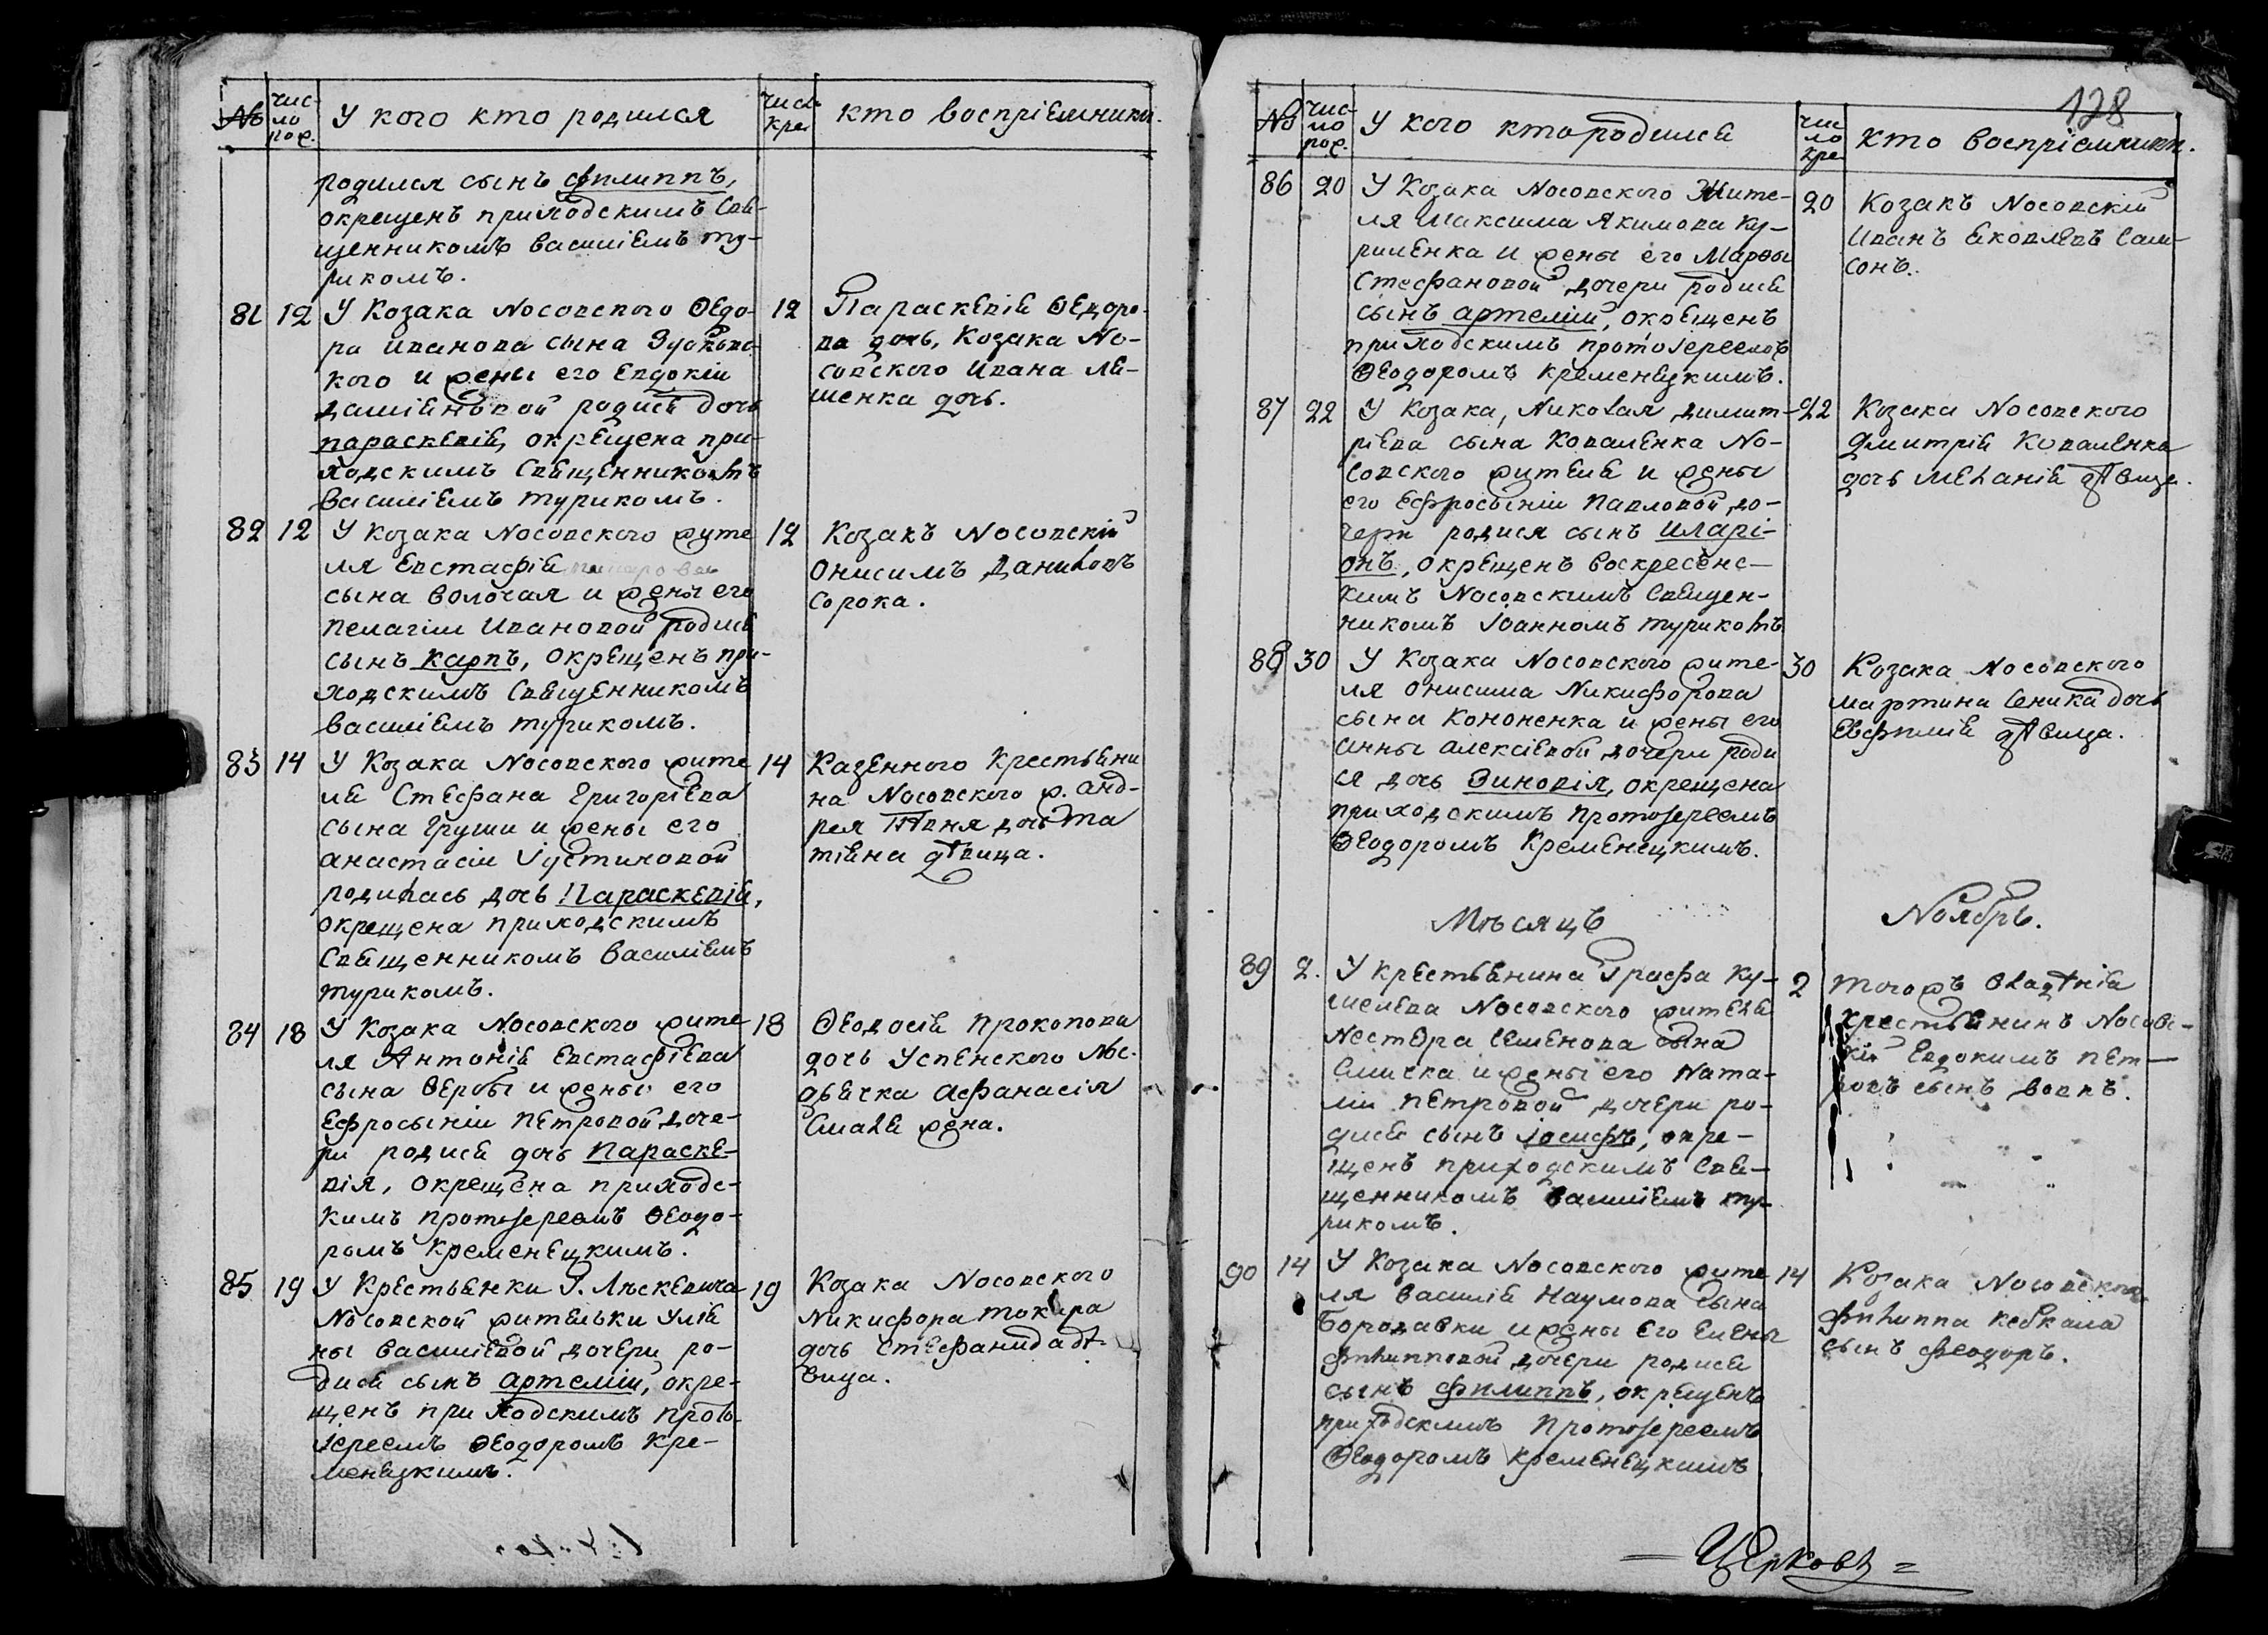 №
чис-
ло
рож.
У кого кто родился
число
кре
кто воспріемники.
родился сынъ Филиппъ,
окрещенъ приходскимъ Свя-
щенникомъ василіемъ ту-
рикомъ.
81 12 У Козака Носовского Ѳедо-
ра иванова сына
кого и жены его Евдокіи
даміяновой родися дочь
параскевія, окрещена при-
ходскимъ Священникомъ
василіемъ туриком.
12 Параскевія Ѳедоро-
ва дочь, Козака Но-
совского ивана Ле-
шенка дочь.
82 12 У Козака Носовского жите
ля Евстафія
сына волочая и жены его
пелагіи ивановой родися
сынъ карпъ, окрещенъ при-
ходскимъ Священникомъ
василіемъ туриком.
12 Козакъ Носовскій
Онисимъ Даниловъ
Сорока.
83 14 У Козака Носовского жите
ля Стефана Григоріева
сына Груши и жены его
анастасіи Іустиновой
родилась дочь Параскевія,
окрещена приходскимъ
Священникомъ василіемъ
туриком.
14 Казенного Крестьяни
на Носовского ж. анд-
рея дочь та
тіяна дѣвица.
84 18 У Козака Носовского жите
ля Антонія Евстафіева
сына Вербы и жены его
Ефросыніи Петровой доче-
ри родися дочь Параске-
вія, окрещена приходс-
кимъ протоіереемъ Ѳеодо-
ромъ Кременецкимъ.
18 Ѳеодосія прокопова
дочь Успенского Нос.
дьячка Афанасія
Смаля жена.
85 19 У Крестьянки Г. Лискевича
Носовской жительки Улія
ны василіевой дочери ро-
дися сынъ артемій, окре-
щенъ приходскимъ прото-
іереемъ Ѳеодоромъ Кре-
менецкимъ.
19 Козака Носовского
Никифора токаря
дочь Стефанида дѣ-
вица.
128
№
чис-
ло
рож.
У кого кто родился
чис
ло
кре
кто воспріемники.
86 20 У Козака Носовского Жите-
ля Максима Якимова Ку-
риленка и жены его Марѳы
Стефановой дочери родися
сынъ артемій, окрещенъ
приходскимъ протоіереемъ
Ѳеодоромъ кременецкимъ.
20 Козакъ Носовскій
Иванъ яковлевъ Сам-
сонъ.
87 22 У Козака, Николая димит-
ріева сына Коваленка Но-
совского жителя и жены
его Ефросыніи Павловой до-
чери родися сынъ иларі-
онъ, окрещенъ воскресенс-
кимъ Носовскимъ Священ-
никомъ Іоанномъ туриком
22 Козака Носовского
дмитрія Коваленка
дочь меланія дѣвица.
88 30 У Козака Носовского жите-
ля Онисима Никифорова
сына Кононенка и жены его
анны алексіевой дочери роди
ся дочь Зиновія, окрещена
приходскимъ протоіереемъ
Ѳеодоромъ Кременецкимъ.
30 Козака Носовского
мартина Сеника дочь
Евфимія дѣвица.
Мѣсяцъ
Ноябрь.
89 2. У крестьянина Графа Ку-
шелева Носовского жителя
Нестора Семенова сына
Смичка и жены его Ната-
ліи Петровой дочери ро-
дися сынъ Іосифъ, окре-
щенъ приходскимъ Свя-
щенникомъ василіемъ ту-
риком.
2 тогожъ владѣнія
крестьянинъ Носовс-
кій Евдокимъ пет-
ровъ сынъ вовкъ.
90 14 У Козака Носовского жите
ля василія Наумова сына
Бородавки и жены его елены
Филипповой дочери родися
сынъ Филиппъ, окрещенъ
приходскимъ Протоіереемъ
Ѳеодоромъ Кременецкимъ
14 Козака Носовского
Филиппа Кебкала
сынъ феодоръ.
Церковъ